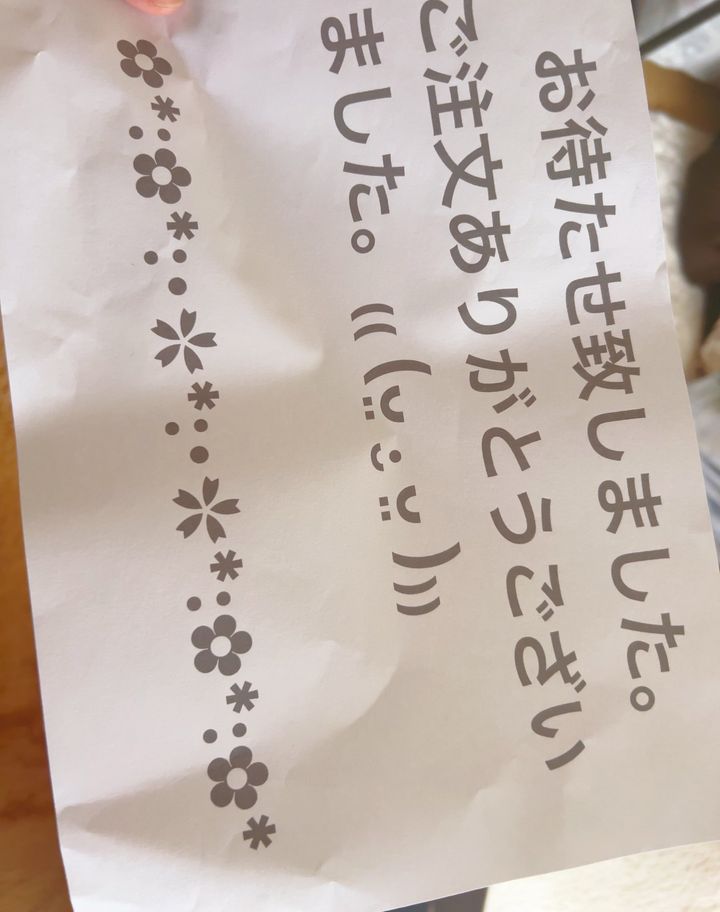 お待たせ致しました。
ご注文ありがとうござい
ました。((( ᵕ̤ ·̮ ᵕ̤ )))
✿*:✿*:･✤*:･✤*:✿*:✿*